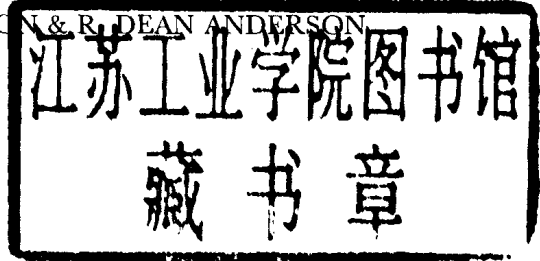 & R. DEAN ANDERSON
江苏工业学院图书馆
藏书章